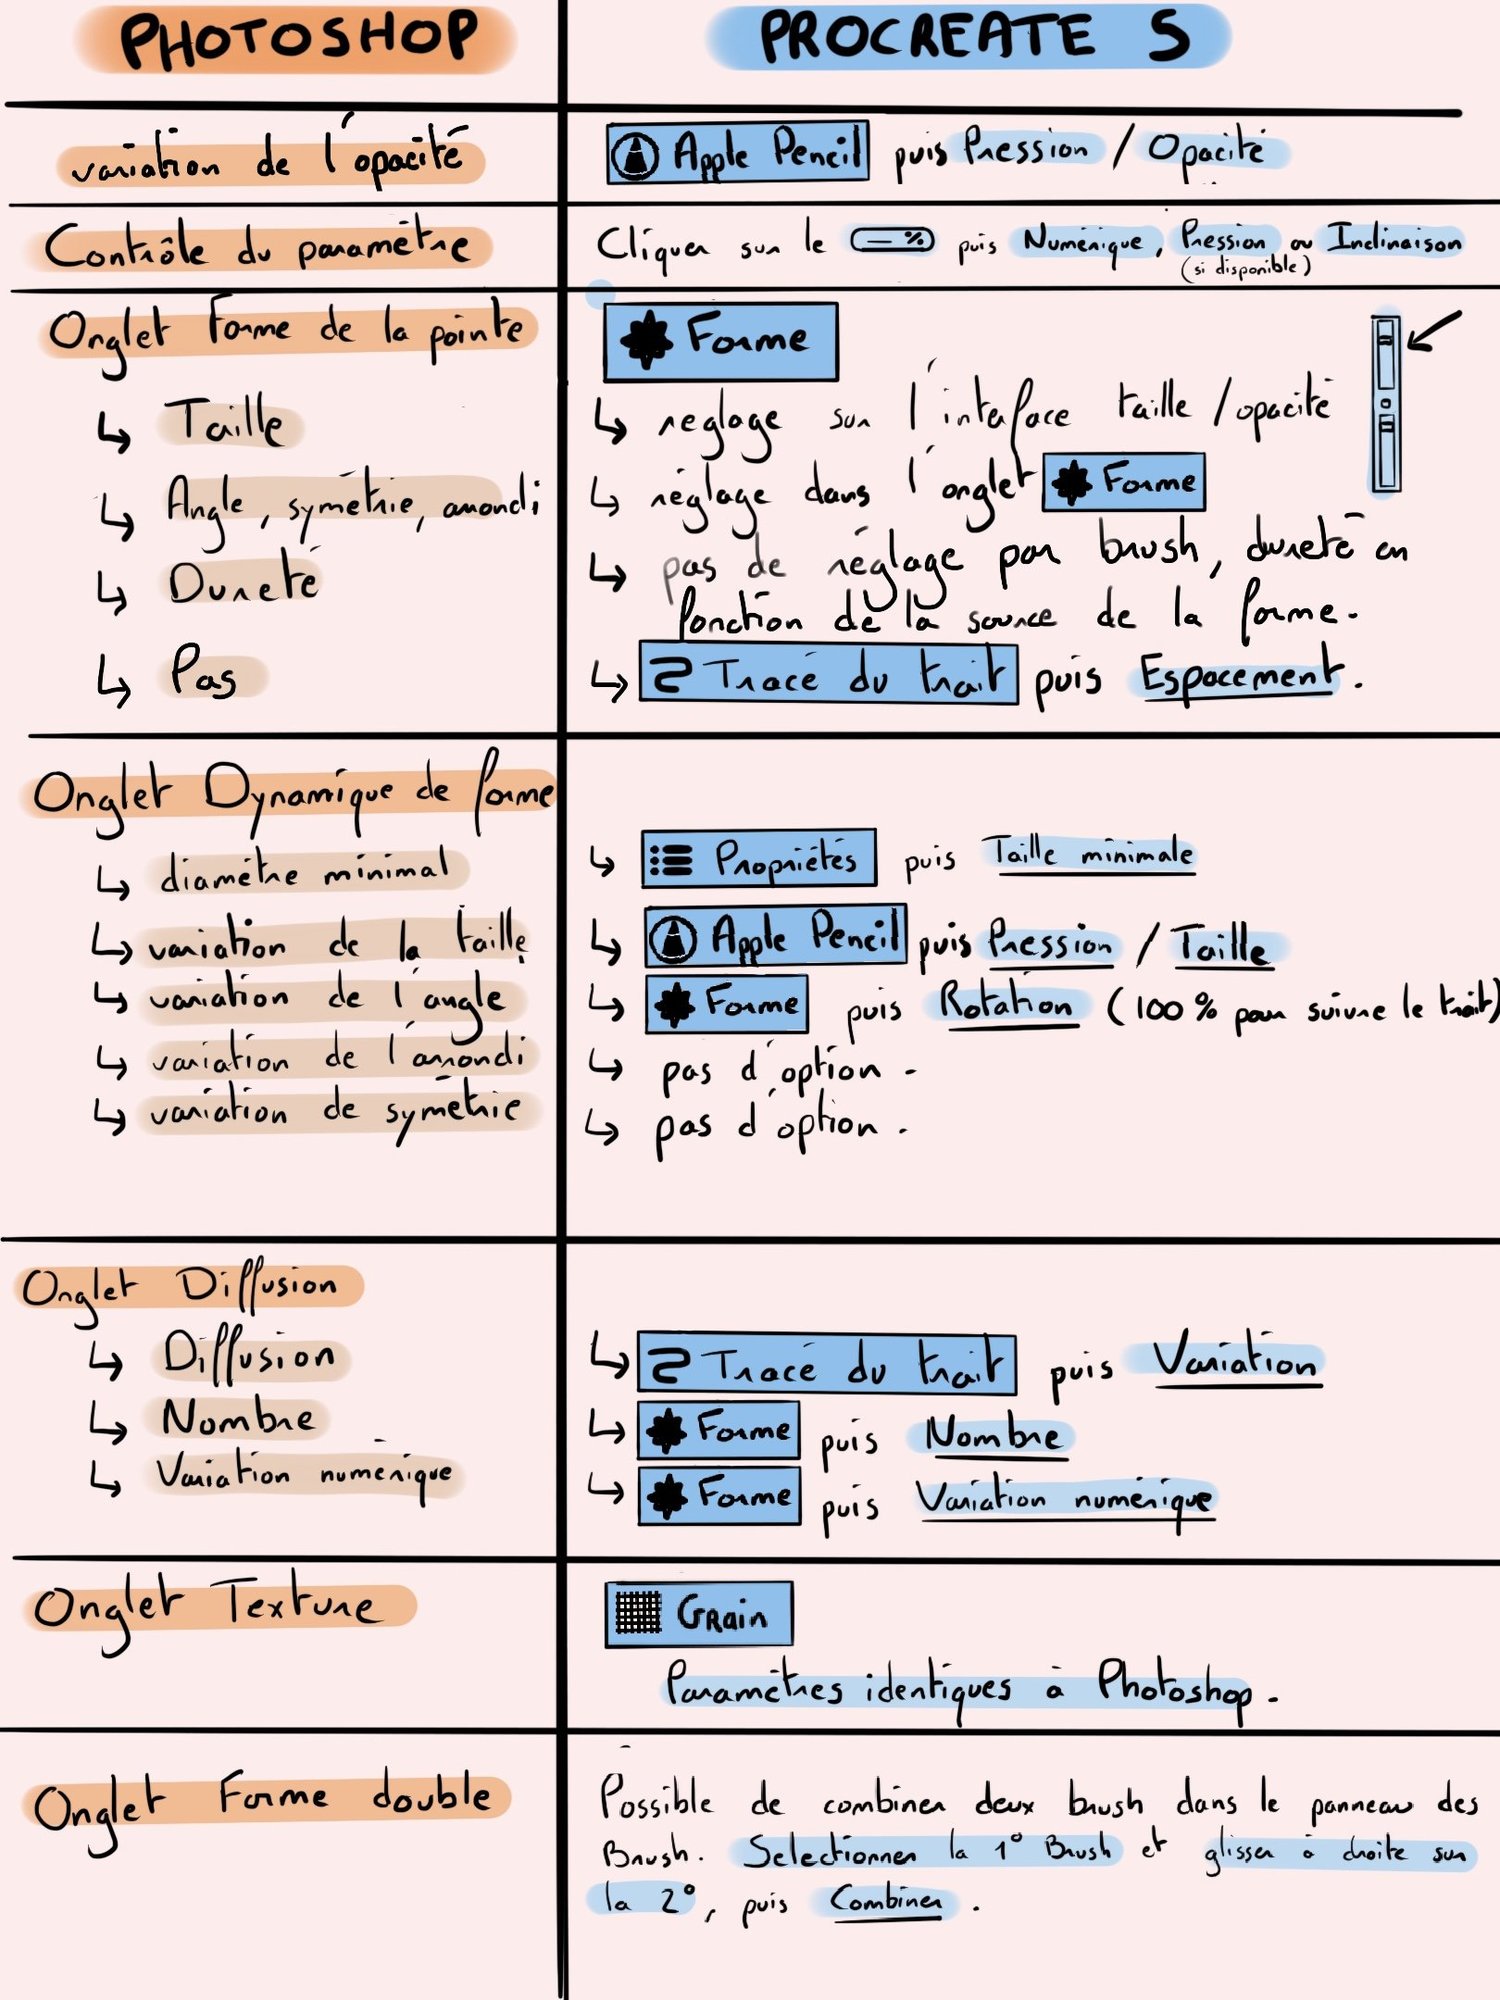 PHOTOSHOP
PROCREATE 5
variation de l'opacité
Apple Pencil puis Pression / Opacité
Contrôle du paramètre
Cliquer sur le — % puis Numérique, Pression ou Inclinaison
(si disponible)
Onglet Forme de la pointe
Forme
↳ Taille
↳ reglage sur l'interface taille / opacité
↳ Angle, symétrie, arrondi
↳ réglage dans l'onglet Forme
↳ Dureté
↳ pas de réglage par brush, dureté en
fonction de la source de la forme.
↳ Pas
↳ Tracé du trait puis Espacement.
Onglet Dynamique de forme
↳ diamètre minimal
↳ Propriétés puis Taille minimale
↳ variation de la taille
↳ Apple Pencil puis Pression / Taille
↳ variation de l'angle
↳ Forme puis Rotation (100 % pour suivre le trait)
↳ variation de l'arrondi
↳ pas d'option.
↳ variation de symétrie
↳ pas d'option.
Onglet Diffusion
↳ Diffusion
↳ Tracé du trait puis Variation
↳ Nombre
↳ Forme puis Nombre
↳ Variation numérique
↳ Forme puis Variation numérique
Onglet Texture
Grain
Paramètres identiques à Photoshop.
Onglet Forme double
Possible de combiner deux brush dans le panneau des
Brush. Selectionner la 1° Brush et glisser à droite sur
la 2°, puis Combiner.